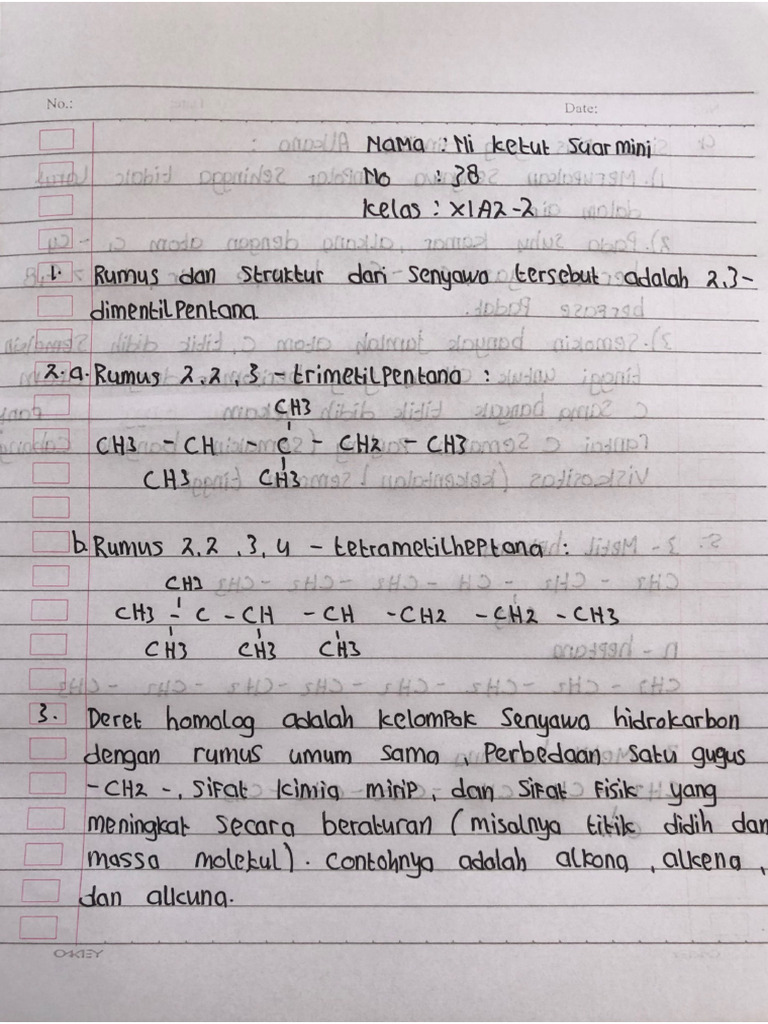 No.:
Date:
Nama : Ni Ketut Suarmini
No : 38
Kelas : XIA2-2
1. Rumus dan Struktur dari Senyawa tersebut adalah 2,3-
dimentilPentana
2.a. Rumus 2,2,3 - trimetilPentana :
CH3
CH3 - CH - C - CH2 - CH3
CH3 CH3
b. Rumus 2,2,3,4 - tetrametilheptana :
CH3
CH3 - C - CH - CH - CH2 - CH2 - CH3
CH3 CH3 CH3
3. Deret homolog adalah kelompok Senyawa hidrokarbon
dengan rumus umum sama, Perbedaan satu gugus
-CH2 -, Sifat kimia mirip, dan Sifat Fisik yang
meningkat Secara beraturan (misalnya titik didih dan
massa molekul). Contohnya adalah alkana, alkena,
dan alkuna.
OKEY